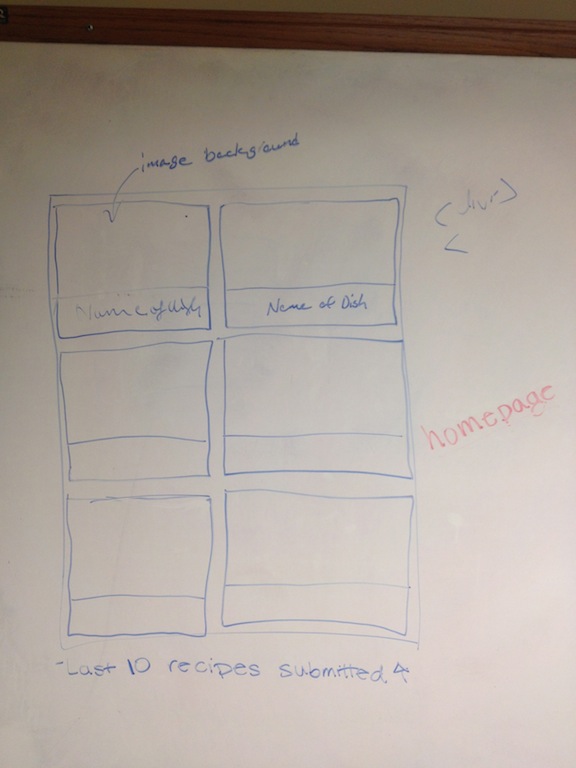 image background
Name of dish
Name of Dish
homepage
-Last 10 recipes submitted.